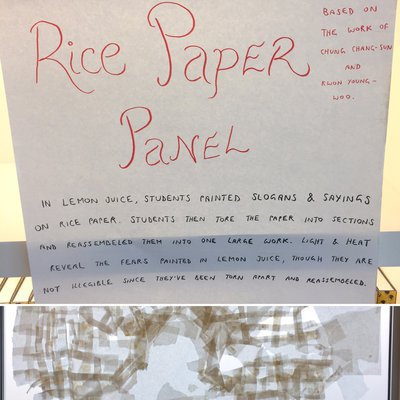 Rice Paper
Panel
Based on
the work of
Chung Chang-Sun
and
Kwon Young-
Woo.
In lemon juice, students painted slogans & sayings
on rice paper. Students then tore the paper into sections
and reassembeled them into one large work. Light & heat
reveal the fears painted in lemon juice, though they are
not illegible since they've been torn apart and reassembeled.